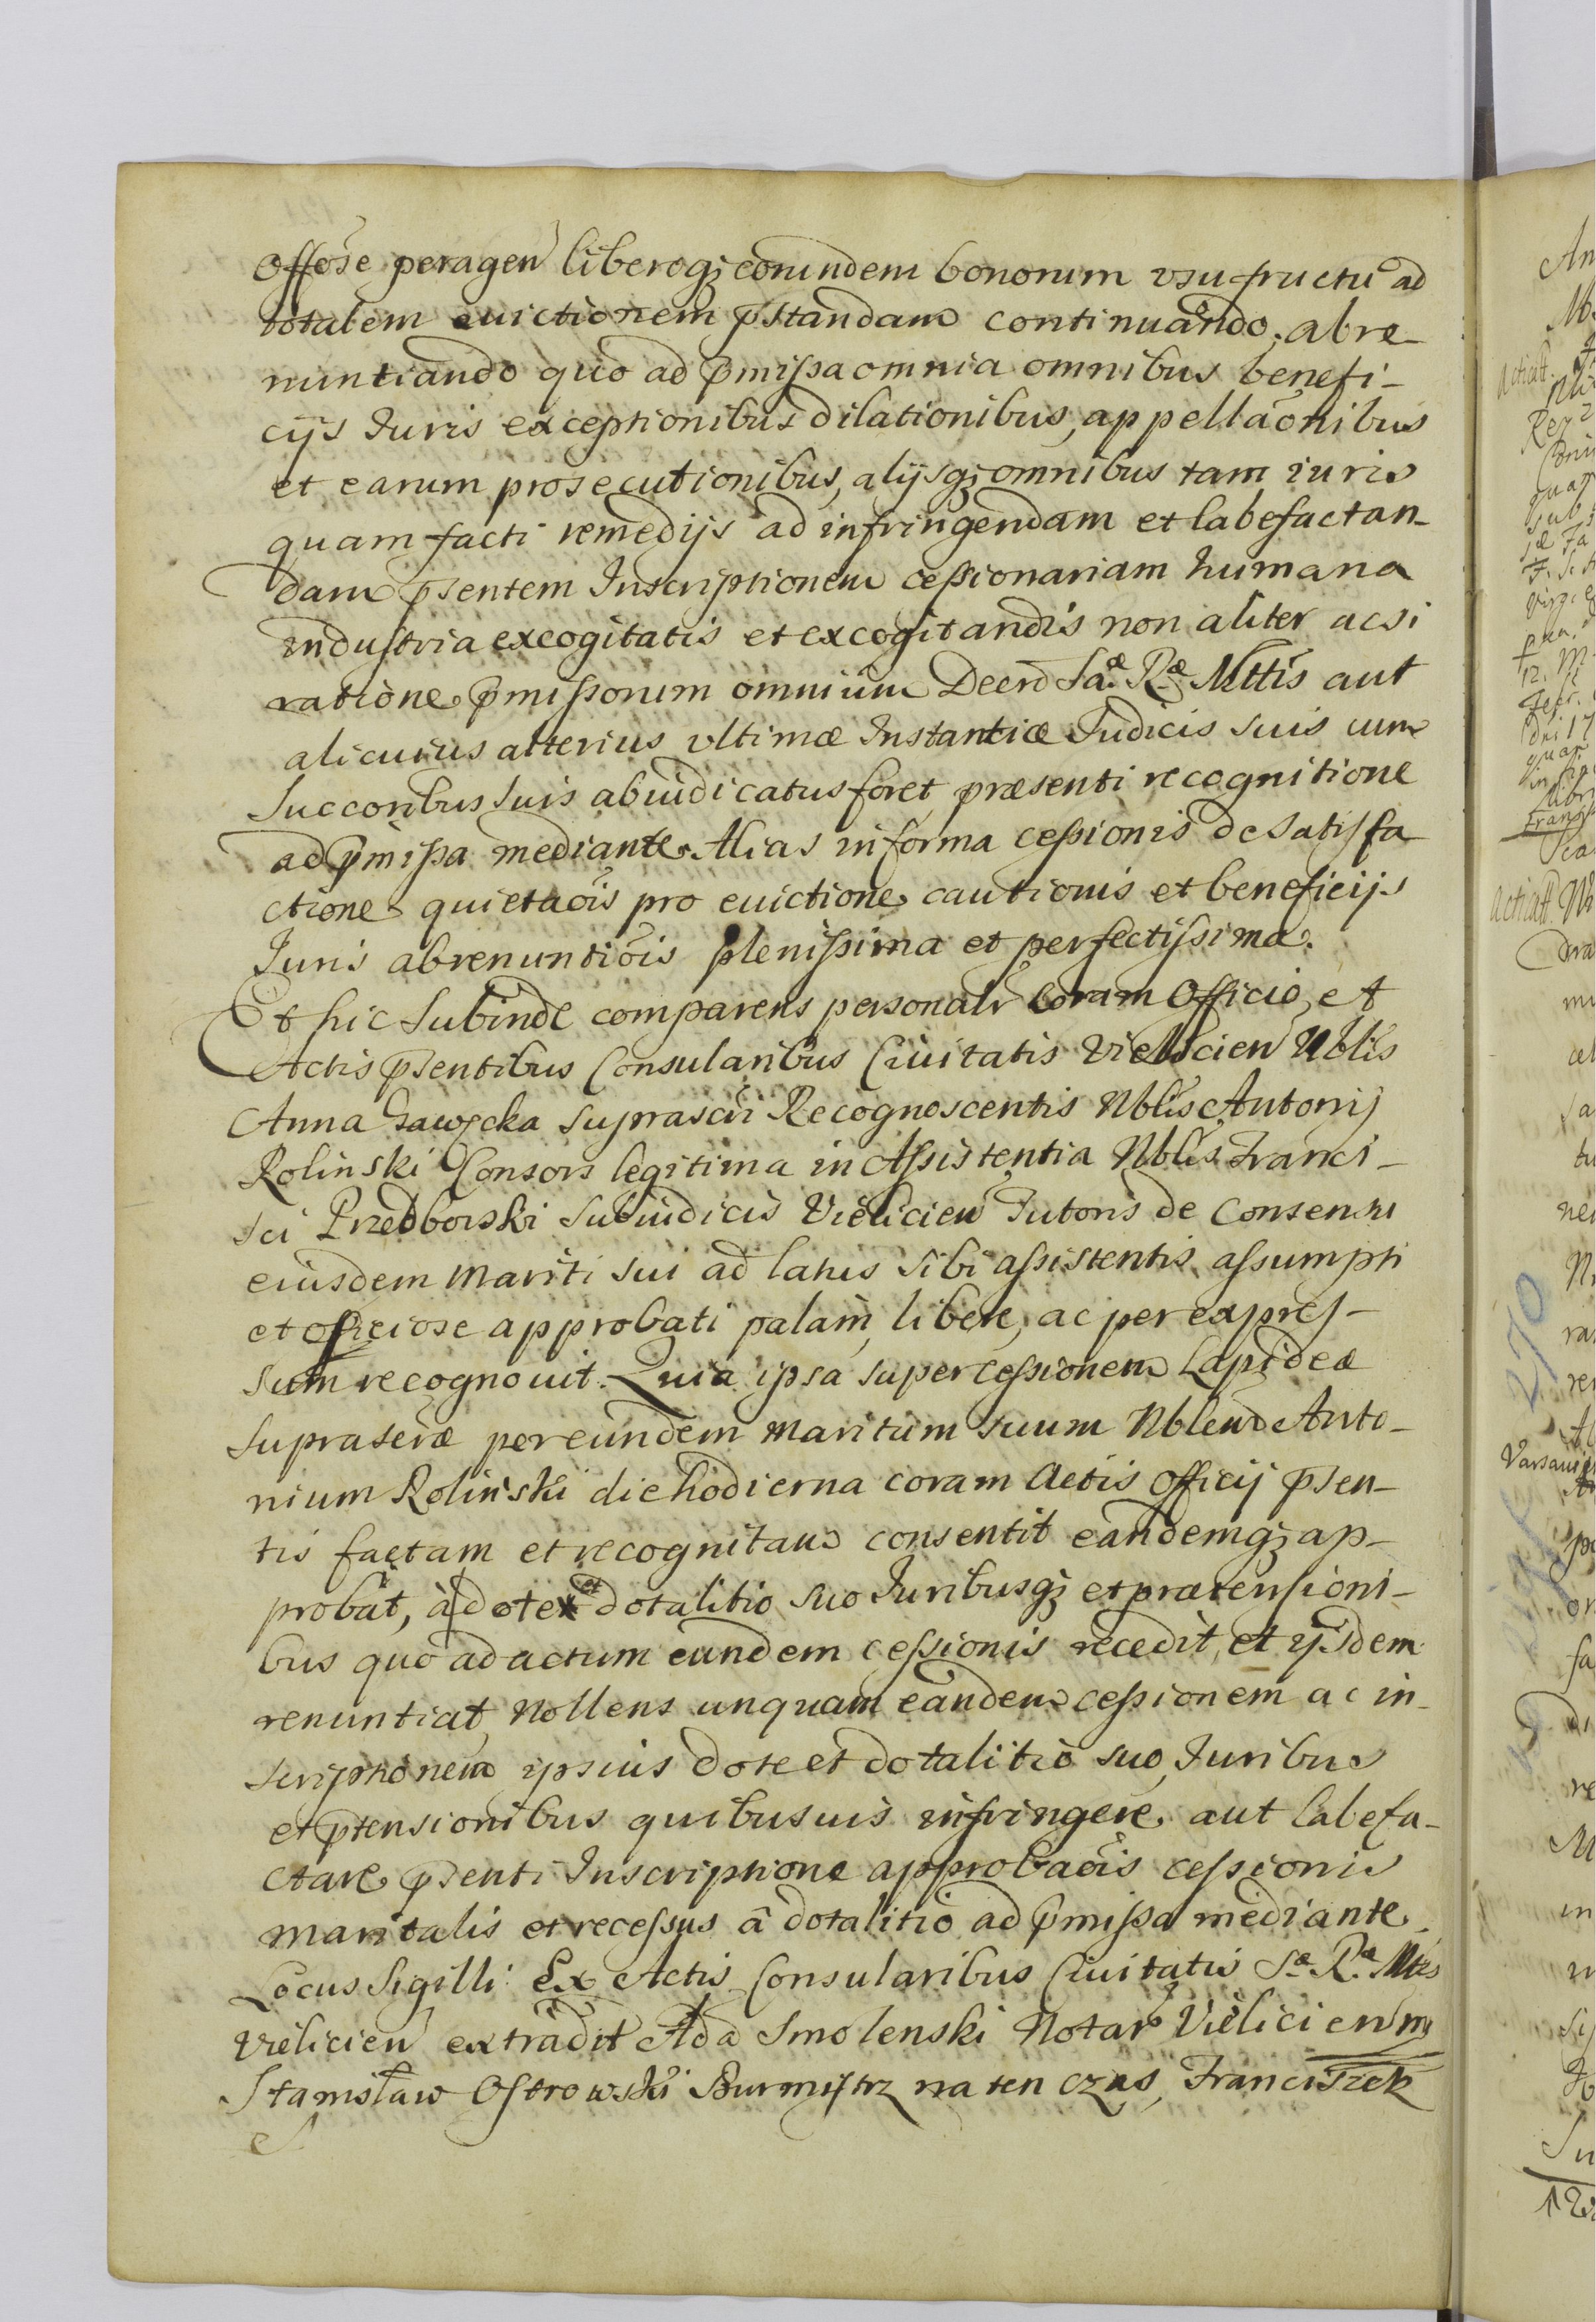 Offose peragen liberoq; eorundem bonorum vsufructu ad
totalem euictionem pstandam continuando, abre-
nuntiando quo ad pmissa omnia omnibus benefi-
cijs Iuris exceptionibus dilationibus, appellaonibus
et earum prosecutionibus, alijsq; omnibus tam iuris
quam facti remedijs ad infringendam et labefactan-
dam psentem Inscriptionem cessionariam humana
industria excogitatis et excogitandis non aliter acsi
ratione pmissorum omnium Decro Sae Rae Mttis aut
alicuius alterius vltimæ Instantiæ Iudicis suis cum
Succoribus suis abiudicatus foret præsenti recognitione
ad pmissa mediante. Alias in forma cessionis de satisfa
ctione quietaois pro euictione cautionis et beneficijs
Iuris abrenuntiois plenissima et perfectissima.
Et hic Subinde comparens personalr coram Officio et
Actis psentibus Consularibus Ciuitatis Vielicien Nblis
Anna Gawęcka suprascri Recognoscentis Nblis Antonij
Rolinski Consors legitima in Assistentia Nblis Franci-
sci Przedborski Subiudicis Vielicien Tutoris de consensu
eiusdem mariti sui ad latus sibi assistentis assumpti
et officiose approbati palam, libere, ac per expres-
sum recognouit. Quia ipsa super cessionem Lapideæ
suprascræ per eundem maritum suum Nblem Anto-
nium Rolinski die hodierna coram Actis Officij psen-
tis factam et recognitam consentit eandemq; ap-
probat, à dote et dotalitio suo Iuribusq; et prætensioni-
bus quo ad actum eundem cessionis recedit, et ijsdem
renuntiat, Nollens unquam eandem cessionem ac in-
scriptionem ipsius dote et dotalitio suo, Iuribus
et ptensionibus quibusuis infringere aut labefa-
ctare psenti Inscriptione approbaois cessionis
maritalis et recessus à dotalitio ad pmissa mediante.
Locus Sigilli Ex Actis Consularibus Ciuitatis Sæ Ræ Mttis
Vielicien extradit Ada Smolenski Notar Vielicien mp
Stanisław Ostrowski Burmistrz na ten czas, Franciszek
270